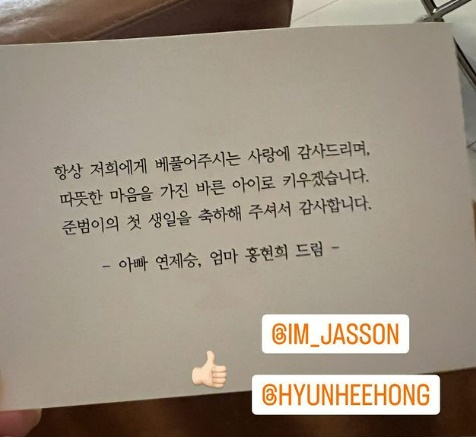 항상 저희에게 베풀어주시는 사랑에 감사드리며,
따뜻한 마음을 가진 바른 아이로 키우겠습니다.
준범이의 첫 생일을 축하해 주셔서 감사합니다.
- 아빠 연제승, 엄마 홍현희 드림 -
@IM_JASSON
@HYUNHEEHONG